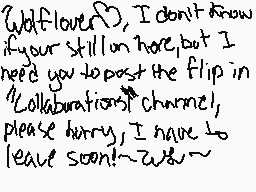 Wolflover♡, I don't know
if your still on here, but I
need you to post the flip in
"Collaborations" channel,
please hurry, I have to
leave soon!~